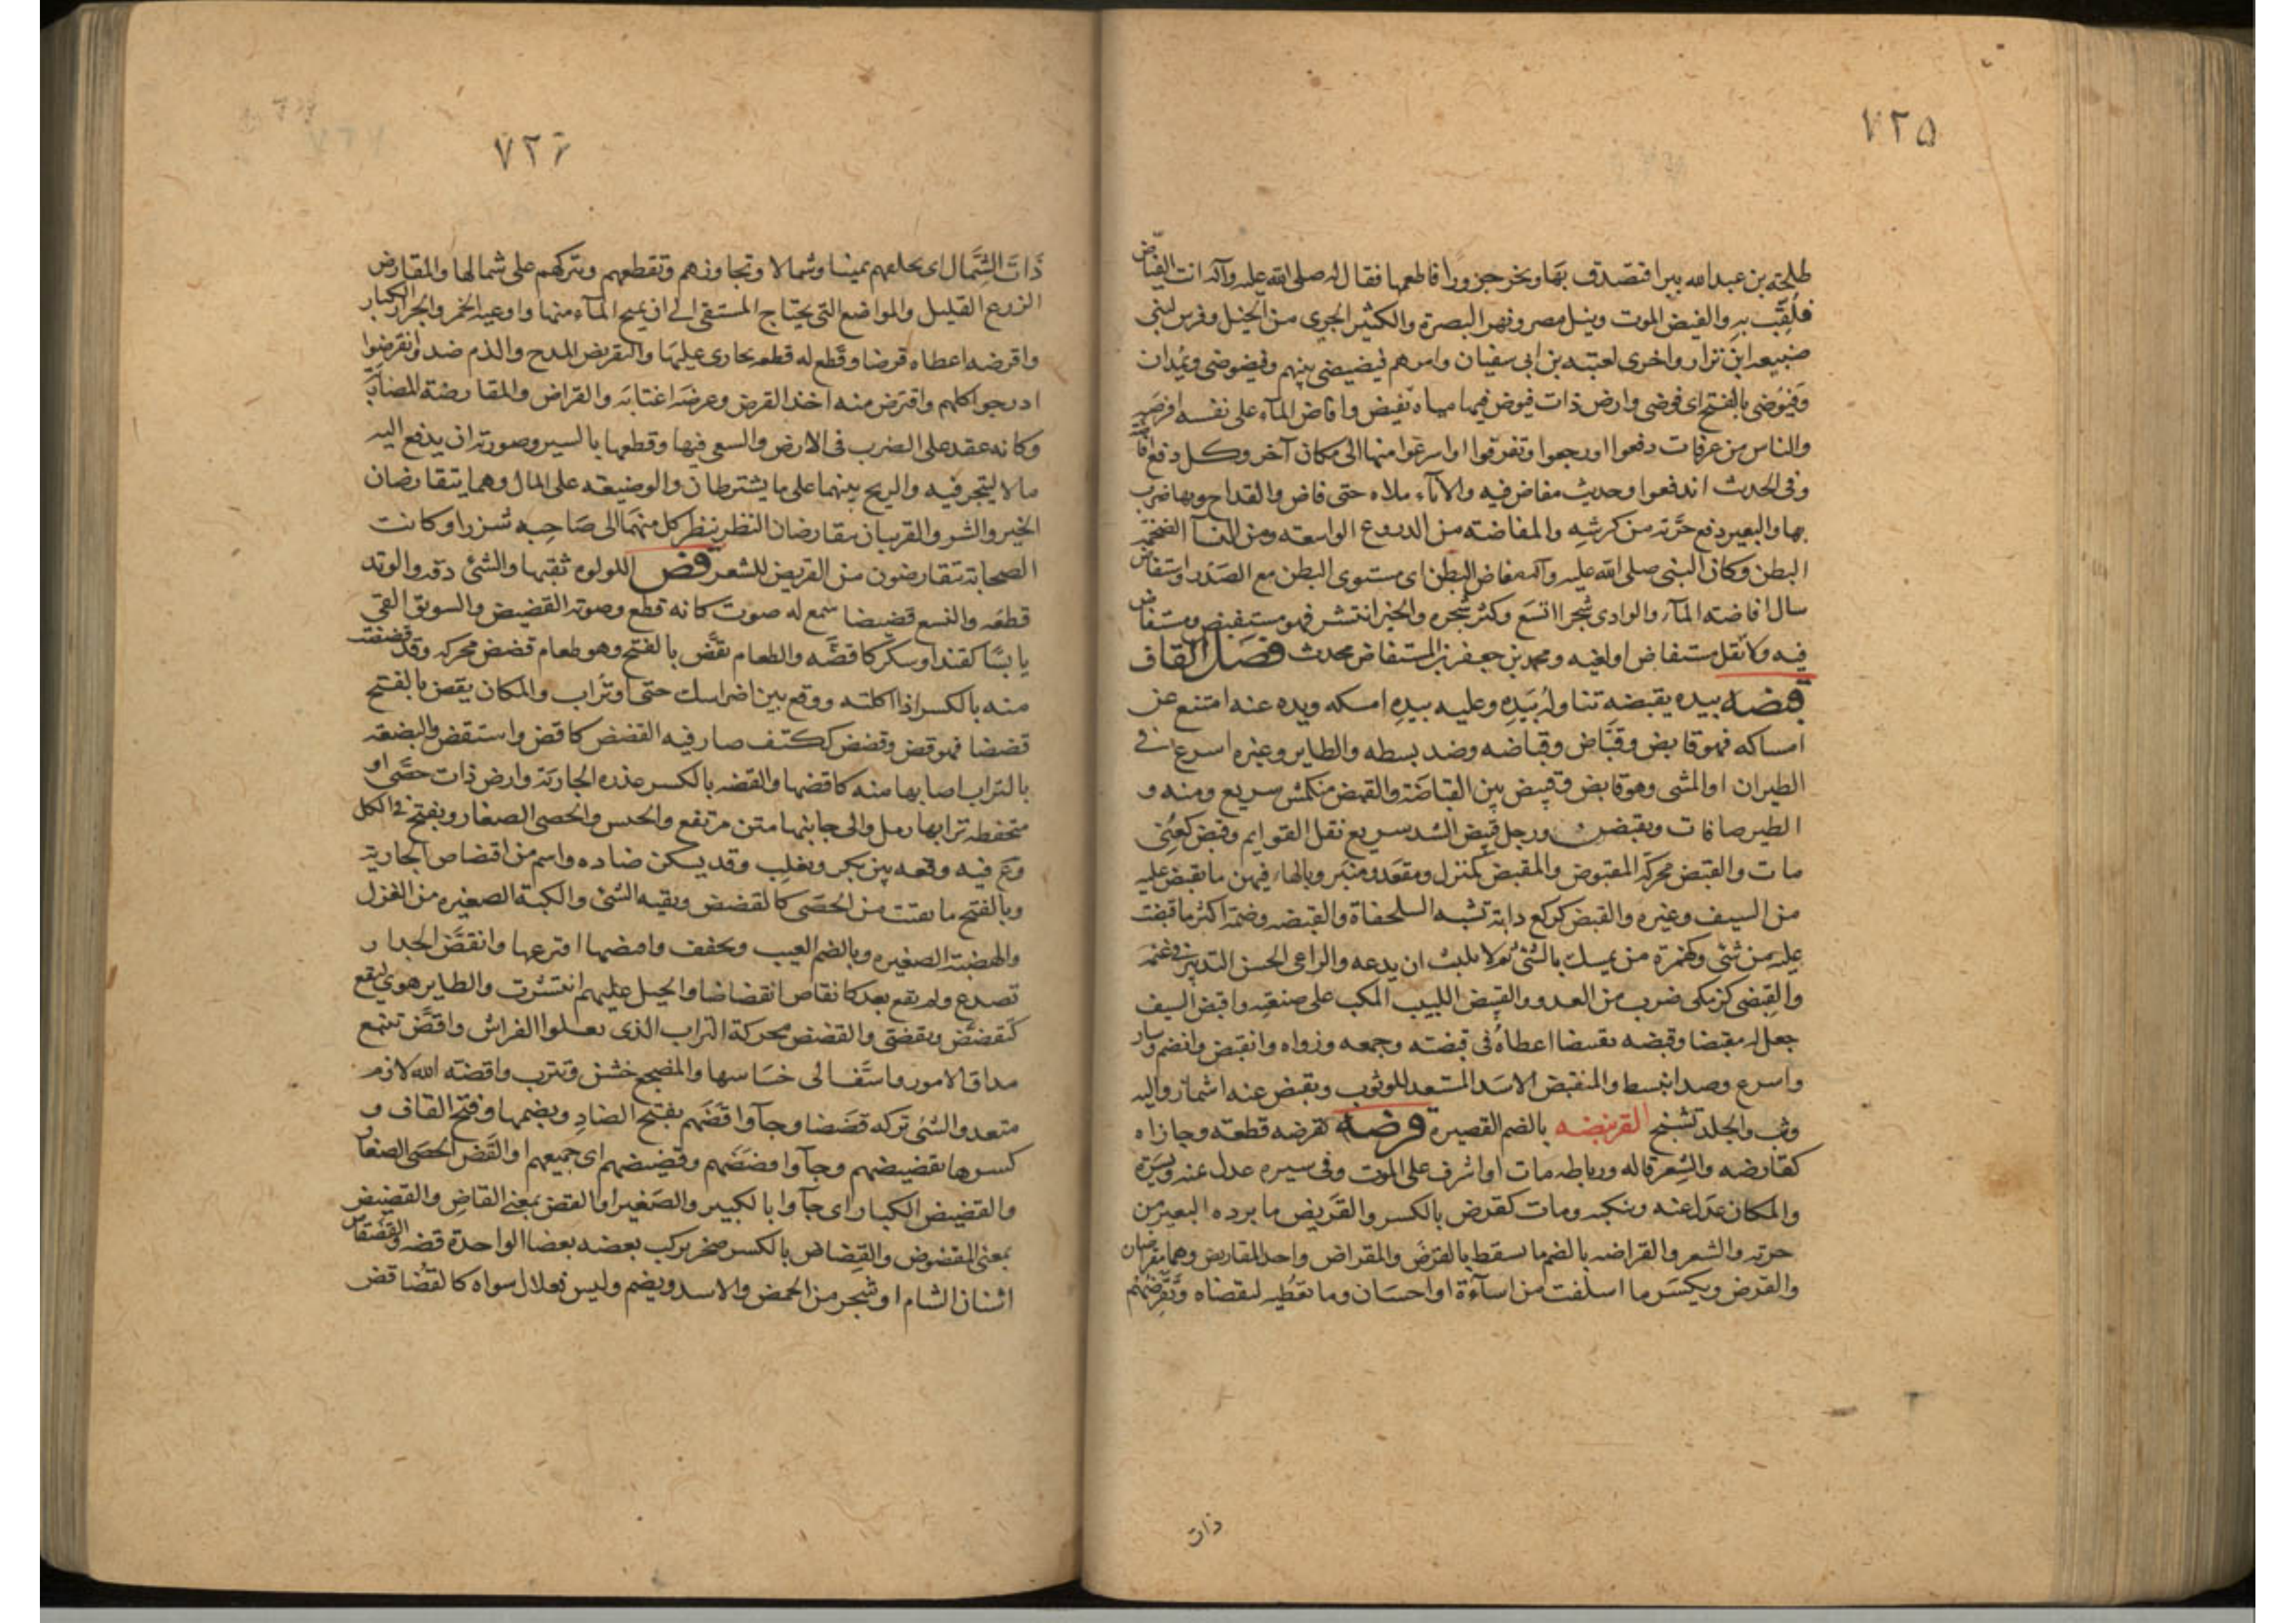 ٧٢٥
طلحة بن عبدالله بيرا فتصدق بها ونحر جزورا فاطعمها فقال له صلى الله عليه وآله انت الفيّاض
فلُقِّب به والفيض الموت ونيل مصر ونهر البصرة والكثير الجرى من الخيل وفرس لبنى
ضبيعه ابن نزار واخرى لعتبه بن ابى سفيان وامرهم فيضيضى بينهم وفيضوضى ويمدان
وفيوضى بالفتح اى فوضى وارض ذات فيوض فيها مياه تفيض وافاض المآء على نفسه افرغه
والناس من عرفات دفعوا اورجعوا وتفرقوا او اسرعوا منها الى مكان آخر وكل دفع افاضة
وفى الحديث اندفعوا وحديث مفاض فيه والانآء ملاه حتى فاض والقداح وبها ضرب
بها والبعير دفع جرّته من كرشه والمفاضته من الدروع الواسعته ومن النسآ الضخمة
البطن وكان النبى صلى الله عليه وآله مفاض البطن اى مستوى البطن مع الصّدر واستفاض
سال افاضته المآء والوادى شجرا اتسَع وكثر شجره والخبر انتشر فهو مستفيض ومستفاض
فيه ولا تقل مستفاض او لغيه ومحمد بن جعفر بن المستفاض محدث فصل القاف
قبضه بيده يقبضه تناوله بَيَدِه وعليه بيدِه امسكه ويده عنه امتنع عن
امساكه فهو قابض وقبّاض وقباضه وضد بسطه والطاير وغيره اسرع فى
الطيران او المشى وهو قابض وقبيض بين القباضَة والقبض منكمش سريع ومنه و
الطير صافات ويقبضن ورجل قبيض الشد سريع نقل القوايم وقبض كعُنِى
مات والقبض محركه المقبوض والمقبض كمنزل ومقعد ومنبر وبالهاء فيهن ما يقبض عليه
من السيف وغيره والقبض كركع دابة تشبه السلحفاة والقبضه وضمّه اكثر ما قبضت
عليه من شئى وكهمزة من يمسك بالشئى ثم لا يلبث ان يدعه والراعى الحسن التدبير فى غنمه
والقبضى كزمكى ضرب من العدو والقبيض اللبيب المكب على صنعته واقبض السيف
جعل له مقبضا وقبضه تقبيضا اعطاهُ فى قبضته وجمعه وزواه وانقبض وانضم وسار
واسرع وضد انبسط والمنقبض الاسَد المستعد للوثوب وتقبض عنه اشماز واليه
وثب والجلد تشنج القرنبضه بالضم القصيره قرضه يقرضه قطعته وجازاه
كقارضه والشِعر قاله ورباطه مات او اشرف على الموت وفى سيره عدل عنه ويسرَة
والمكان عدَل عنه وتنكبه ومات كقرض بالكسر والقريض ما يرده البعير من
جرته والشعر والقراضه بالضم ما سقط بالقرض والمقراض واحد المقاريض وهما مقراضان
والقرض ويكسَر ما اسلفت من اسآءة او احسَان وما تعطيه لتقضاه وتقرضهُم
ذات
٧٢٦
ذَاتَ الشِّمال اى تخلفهم يمينا وشمالا وتجاوزهم وتقطعهم وتتركهم على شمالها والمقارض
الزرع القليل والمواضع التى يحتاج المستقى الى ان يميح المآء منها واوعيه الخمر والجرار الكبار
واقرضه اعطاه قرضا وقطع له قطعه يجازى عليها والتقريض المدح والذم ضد وانقرضوا
ادرجوا كلهم واقترض منه اخذ القرض وعرضه اغتابه والقراض والمقارضة المضاربة
وكانه عقد على الضرب فى الارض والسعى فيها وقطعها بالسير وصورته ان يدفع اليه
مالا ليتجر فيه والربح بينهما على ما يشترطان والوضيعه على المال وهما يتقارضان
الخير والشر والقرينان يتقارضان النظر ينظر كل منهما الى صَاحِبه شزرا وكانت
الصحابة يتقارضون من القريض للشعر قض اللولوه ثقبها والشئى دقه والوتد
قطعه والنسع قضيضا سمع له صوت كانه قطع وصوته القضيض والسويق القى
يابسًا كقند او سكر كاقضّه والطعام يقَض بالفتح وهو طعام قضض محركه وقد قضضت
منه بالكسر اذا اكلته ووقع بين اضراسك حتى او تُراب والمكان يقض بالفتح
قضضا فهو قض وقضض ككتف صار فيه القضض كاقض واستقض والبضعه
بالتراب اصابها منه كاقضها والقضه بالكسر عذره الجارية وارض ذات حصَى او
منخفضه ترابها رمل والى جانبها متن مرتفع والجنس والحصى الصغار ويفتح فى الكل
وع فيه وقعه بين بكر وتغلب وقد يسكن ضاده واسم من اقتضاض الجاريه
وبالفتح ما تفتت من الحصَى كالقضض وبقيه الشئى والكبة الصغيره من الغزل
والهضبته الصغيره وبالضم العيب ويخفف واقتضها افترعها وانقضّ الجدار
تصدع ولم يقع بعد كانقاض انقضاضا والخيل عليهم انتشرت والطاير هوى ليقع
كتقضّض وتقضّى والقضض محركة التراب الذى يعلوا الفراش واقضّ تتبع
مداق الامور واسَفّ الى خسَاسها والمضجع خشن وتترب واقضته الله لازم
متعد والشئى تركه قضَضا وجآوا قَضَّهم بفتح الضاد وبضمها وفتح القاف و
كسرها بقضيضهم وجآوا قضضهم وقضيضهم اى جميعهم او القَض الحصَى الصغار
والقضيض الكبار اى جآوا بالكبير والصَغير او القض بمعنى القاض والقضيض
بمعنى المقضوض والقِضاض بالكسر صخر يركب بعضه بعضا الواحدة قضه والقضقاض
اشنان الشام او شجر من الحمض والاسد ويضم وليس فعلال سواه كالقُضاقض